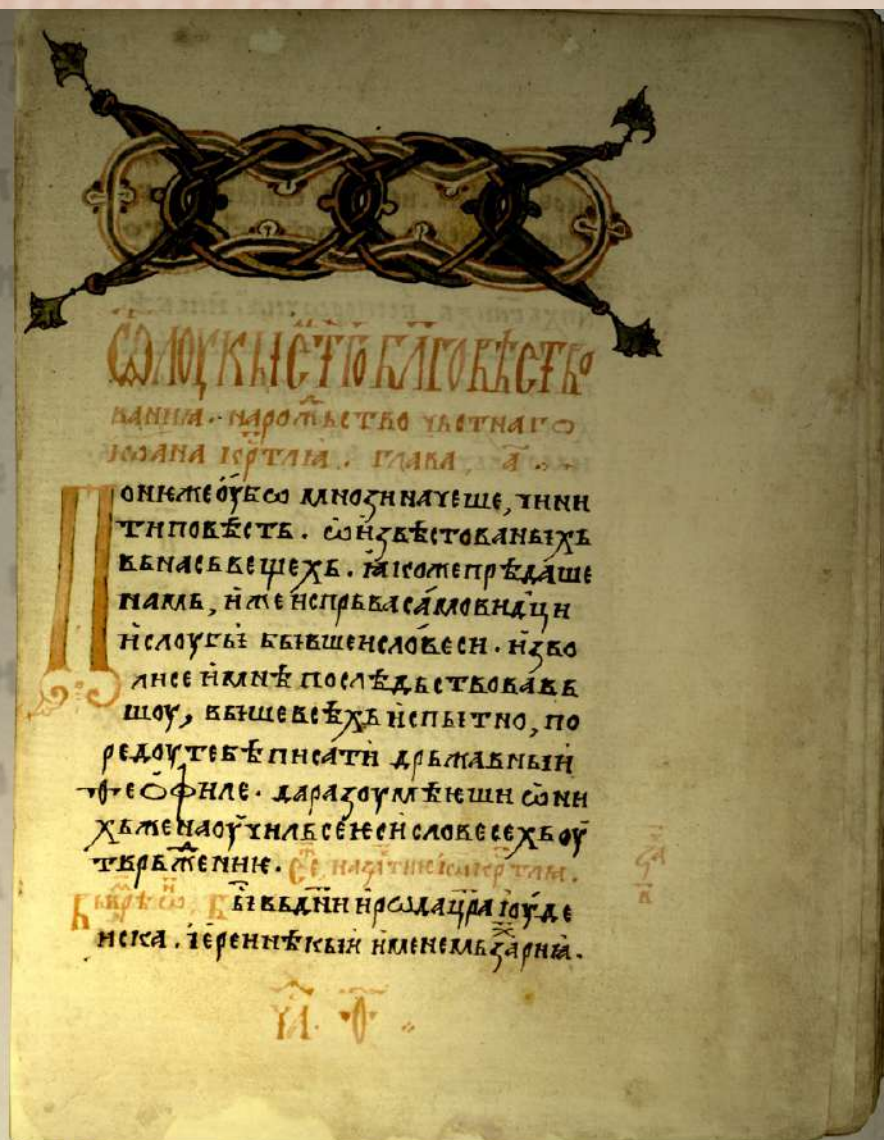 Ѿ лоукы ст҃го бл҃говѣство
ваниꙗ · на рож҇ьство чьстнаго
іѡана кр҇тлꙗ . глава , а҃ .
Понюже оубѡ мнѡзи начеше , чини
ти повѣсть . ѡ извѣстованыхъ
вь нась вещехь . ꙗкоже прѣдаше
намь , иже испрьва самовидци
и слоугы бывшеи словеси . изво
лисе и мнѣ послѣдьствовавь
шоу , выше всѣхь испытно , по
редоу тебѣ писати дрьжавныи
ѳеѡфиле . да разоумѣюши ѡ ни
хьже наоучиль се ѥси словесехь оу
тврьжение .
бы вь дни ирѡда цр҃а іоуде
иска . іереи нѣкыи именемь зарꙗ .